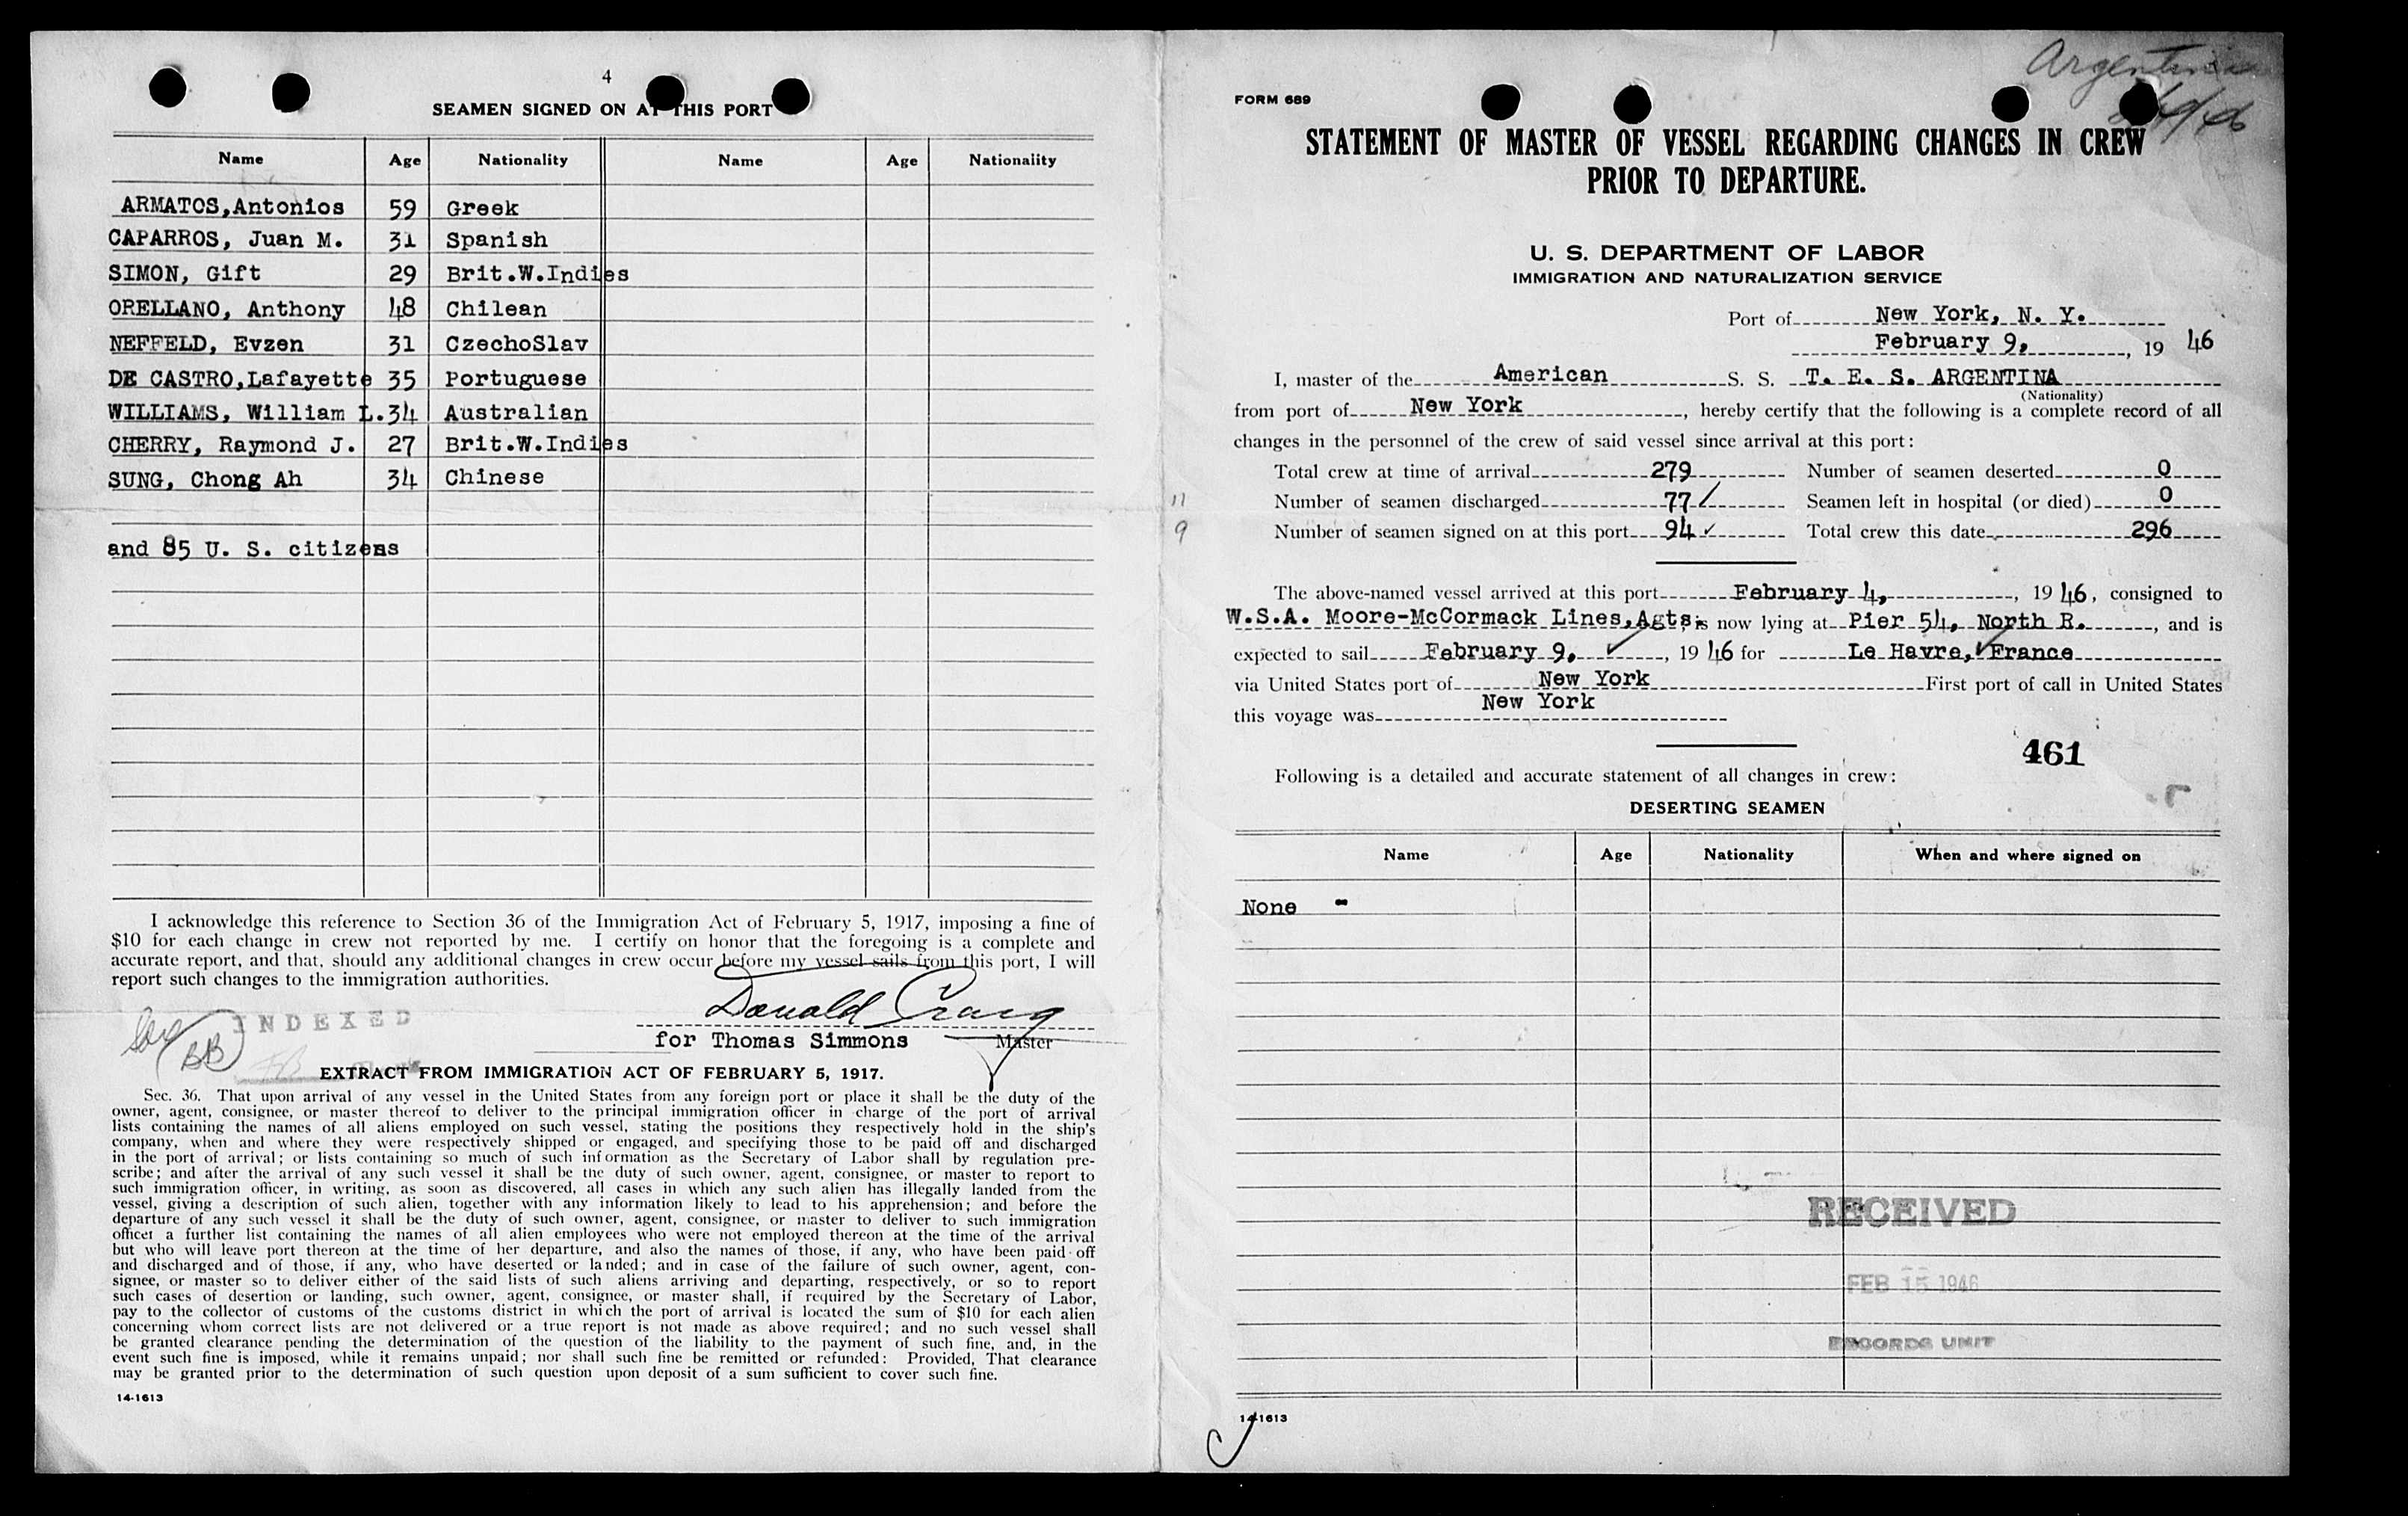 4
SEAMEN SIGNED ON AT THIS PORT
Name Age Nationality Name Age Nationality
ARMATOS,Antonios 59 Greek
CAPARROS, Juan M. 31 Spanish
SIMON, Gift 29 Brit.W.Indies
ORELLANO, Anthony 48 Chilean
NEFFELD, Evzen 31 CzechoSlav
DE CASTRO,Lafayette 35 Portuguese
WILLIAMS, William L. 34 Australian
CHERRY, Raymond J. 27 Brit.W.Indies
SUNG, Chong Ah 34 Chinese
and 85 U. S. citizens
I acknowledge this reference to Section 36 of the Immigration Act of February 5, 1917, imposing a fine of
$10 for each change in crew not reported by me. I certify on honor that the foregoing is a complete and
accurate report, and that, should any additional changes in crew occur before my vessel sails from this port, I will
report such changes to the immigration authorities.
INDEXED
Donald Craig
BB
for Thomas Simmons Master
EXTRACT FROM IMMIGRATION ACT OF FEBRUARY 5, 1917.
Sec. 36. That upon arrival of any vessel in the United States from any foreign port or place it shall be the duty of the
owner, agent, consignee, or master thereof to deliver to the principal immigration officer in charge of the port of arrival
lists containing the names of all aliens employed on such vessel, stating the positions they respectively hold in the ship's
company, when and where they were respectively shipped or engaged, and specifying those to be paid off and discharged
in the port of arrival; or lists containing so much of such information as the Secretary of Labor shall by regulation pre-
scribe; and after the arrival of any such vessel it shall be the duty of such owner, agent, consignee, or master to report to
such immigration officer, in writing, as soon as discovered, all cases in which any such alien has illegally landed from the
vessel, giving a description of such alien, together with any information likely to lead to his apprehension; and before the
departure of any such vessel it shall be the duty of such owner, agent, consignee, or master to deliver to such immigration
officer a further list containing the names of all alien employees who were not employed thereon at the time of the arrival
but who will leave port thereon at the time of her departure, and also the names of those, if any, who have been paid off
and discharged and of those, if any, who have deserted or landed; and in case of the failure of such owner, agent, con-
signee, or master so to deliver either of the said lists of such aliens arriving and departing, respectively, or so to report
such cases of desertion or landing, such owner, agent, consignee, or master shall, if required by the Secretary of Labor,
pay to the collector of customs of the customs district in which the port of arrival is located the sum of $10 for each alien
concerning whom correct lists are not delivered or a true report is not made as above required; and no such vessel shall
be granted clearance pending the determination of the question of the liability to the payment of such fine, and, in the
event such fine is imposed, while it remains unpaid; nor shall such fine be remitted or refunded: Provided, That clearance
may be granted prior to the determination of such question upon deposit of a sum sufficient to cover such fine.
14-1613
Argentina
FORM 689
STATEMENT OF MASTER OF VESSEL REGARDING CHANGES IN CREW
PRIOR TO DEPARTURE.
U. S. DEPARTMENT OF LABOR
IMMIGRATION AND NATURALIZATION SERVICE
Port of New York, N. Y.
February 9, , 19 46
I, master of the American S. S. T. E. S. ARGENTINA
(Nationality)
from port of New York , hereby certify that the following is a complete record of all
changes in the personnel of the crew of said vessel since arrival at this port:
Total crew at time of arrival 279 Number of seamen deserted 0
11 Number of seamen discharged 77 ✓ Seamen left in hospital (or died) 0
9 Number of seamen signed on at this port 94 ✓ Total crew this date 296
The above-named vessel arrived at this port February 4, , 19 46, consigned to
W.S.A. Moore-McCormack Lines,Agts; is now lying at Pier 54, North R. , and is
expected to sail February 9, ✓ , 19 46 for Le Havre, ✓ France
via United States port of New York First port of call in United States
this voyage was New York
461
Following is a detailed and accurate statement of all changes in crew:
DESERTING SEAMEN
Name Age Nationality When and where signed on
None -
RECEIVED
FEB 15 1946
RECORDS UNIT
14-1613